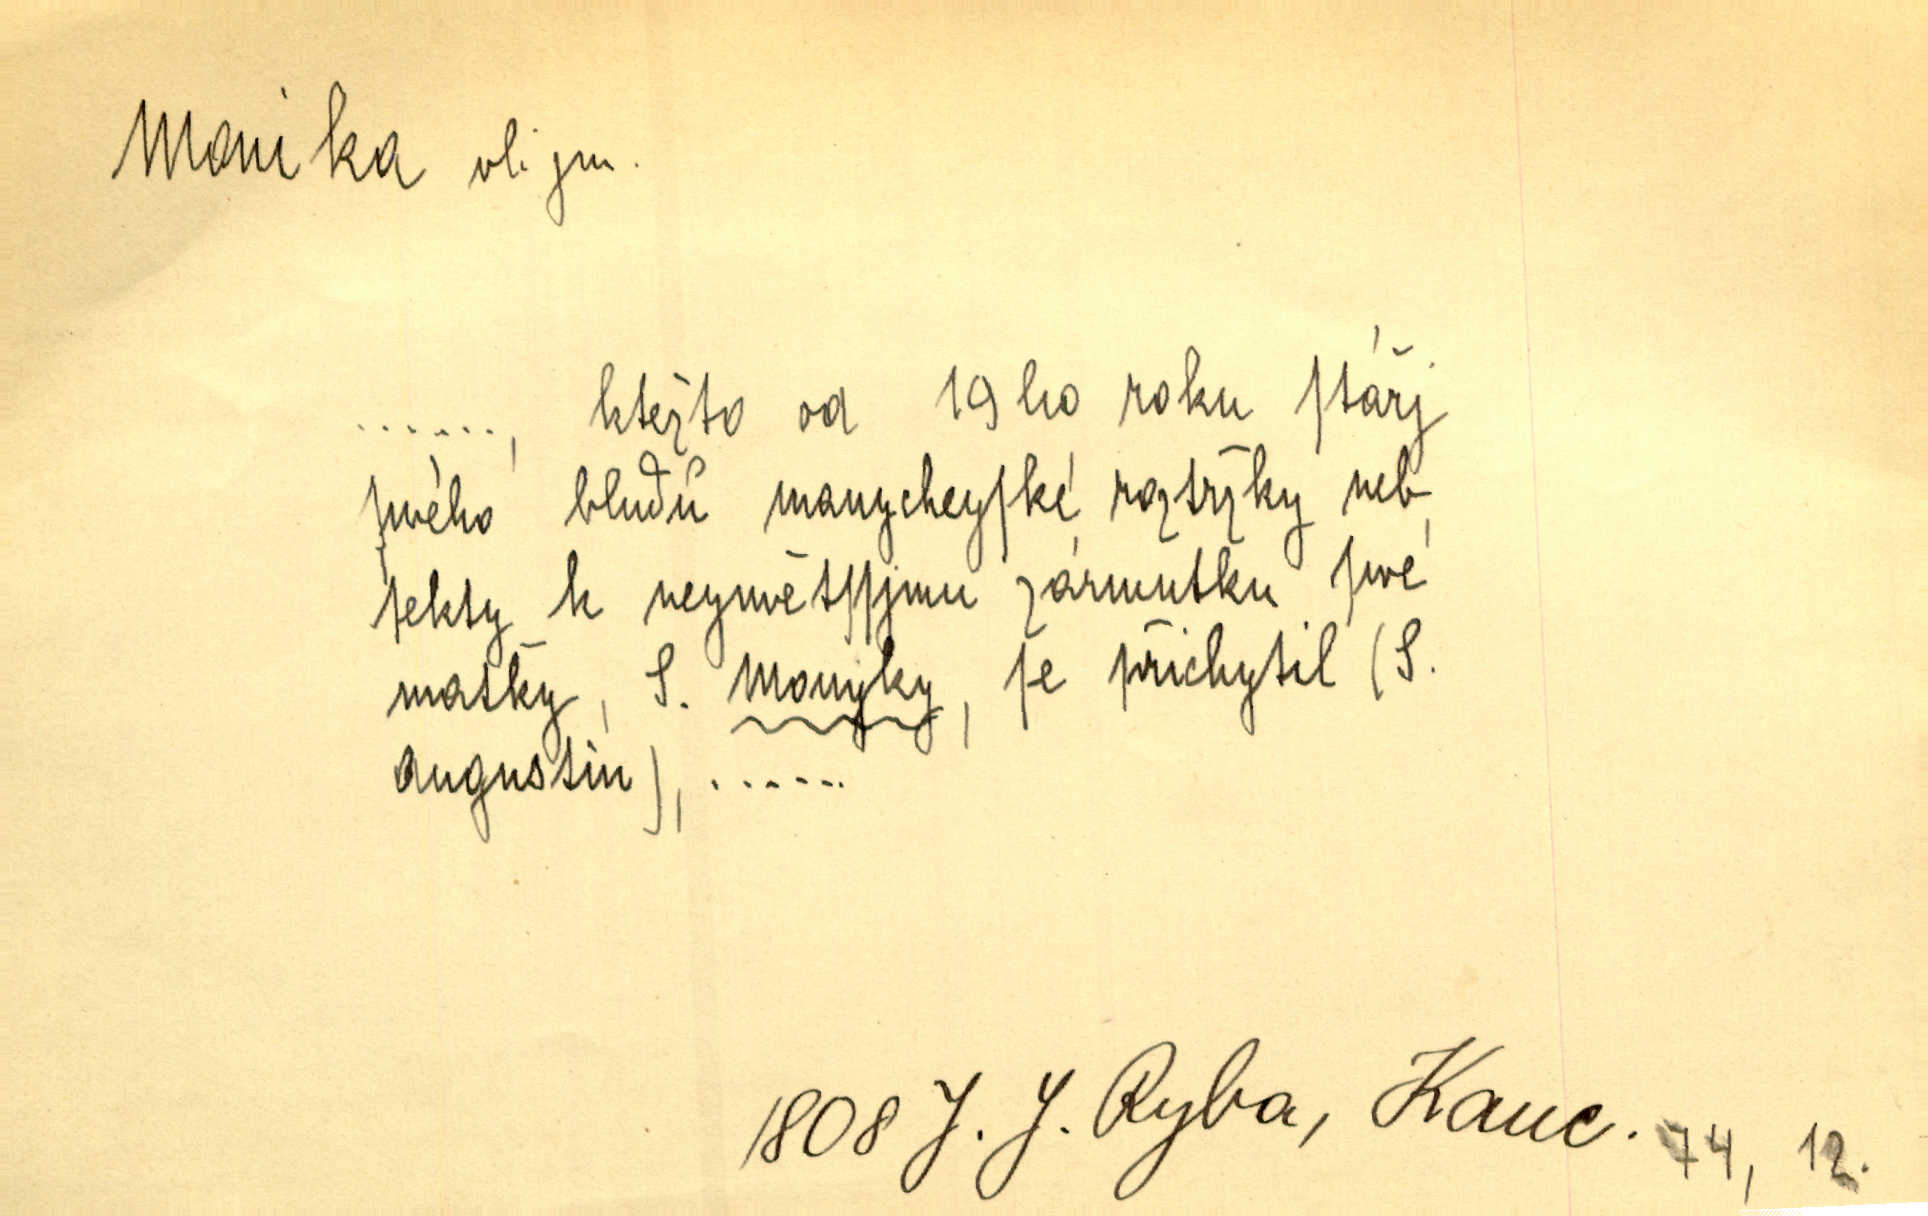 Monika vl. jm.
......, ktežto od 19ho roku ſtářj
ſwého bludů manycheyſké roztržky neb
ſekty k neymětſſjmu zármutku ſwé
matky, S. Monyky, ſe přichytil (S.
Augustin), ......
1808 J. J. Ryba, Kanc. 74, 12.